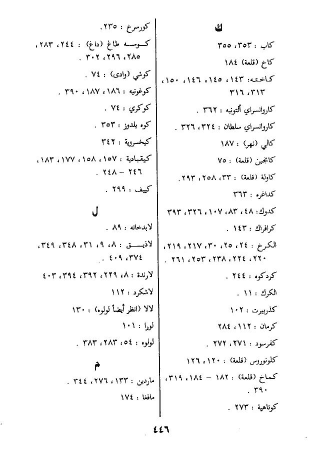 ك
كاب : ٣٥٣، ٣٥٥
كاخ (قلعة) ١٨٤
كاختـه : ١٤٣، ١٤٥، ١٤٦، ١٥٠،
٣١٣، ٣١٦
كاروانسراي آلتونبه : ٣٦٢
كاروانسراي سلطان : ٣٢٤، ٣٢٦
كالي (نهر) : ١٨٧
كانجين (قلعة) : ٧٥
كاولة (قلعة) : ٣٣، ٢٥٨، ٢٩٣.
كداغره : ٣٦٣
كدوك: ٤٨، ٨٣، ١٠٧، ٣٢٦، ٣٩٣
كرافراك : ١٤٣.
الكرخ : ٢٤، ٢٥، ٣٠، ٢١٧، ٢١٩،
٢٢٠، ٢٢٤، ٢٣٨، ٢٥٣، ٢٦١.
كردكوه : ٢٤٤.
الكرك : ١١.
كذبربرت : ١٠٢
كرمان : ١١٢، ٢٨٤
كفرسود : ٢٧١، ٢٧٢.
كلونوروس (قلعة) : ١٢٠، ١٢٦
كماخ (قلعة) : ١٨٢ – ١٨٤، ٣١٩،
٣٩٠
كوتاهية : ٢٧٣.
كورسرخ : ٢٣٥.
كوسه طاغ (داغ) : ٢٤٤، ٢٨٣،
٢٨٥، ٢٩٦، ٣٠٢.
كوشي (وادى) : ٧٤
كوغونيه : ١٨٦، ١٨٧، ٣٩٠.
كوكري : ٧٤
كوه بلدوز : ٣٥٣
كيخسروية : ٣٤٢
كيقبادية : ١٥٧، ١٥٨، ١٧٧، ١٨٣،
٢٤٦ – ٢٤٨.
كييف : ٢٩٩.
ل
لابدخانه : ٨٩.
لاذيق : ٨، ٩، ٣١، ٣٤٨، ٣٤٩،
٣٧٤، ٤٠٩.
لارندة : ٨، ٢٢٩، ٣٩٢، ٣٩٤، ٤٠٣
لاشكرد : ١١٢
لالا (انظر أيضاً لولوه) : ١٣٠
لورا : ١٠١
لولوه : ٥٤، ٢٨٣، ٣٨٣.
م
ماردين : ١٣٣، ٢٧٦، ٣٤٤.
مافغا : ١٧٤
٤٤٦